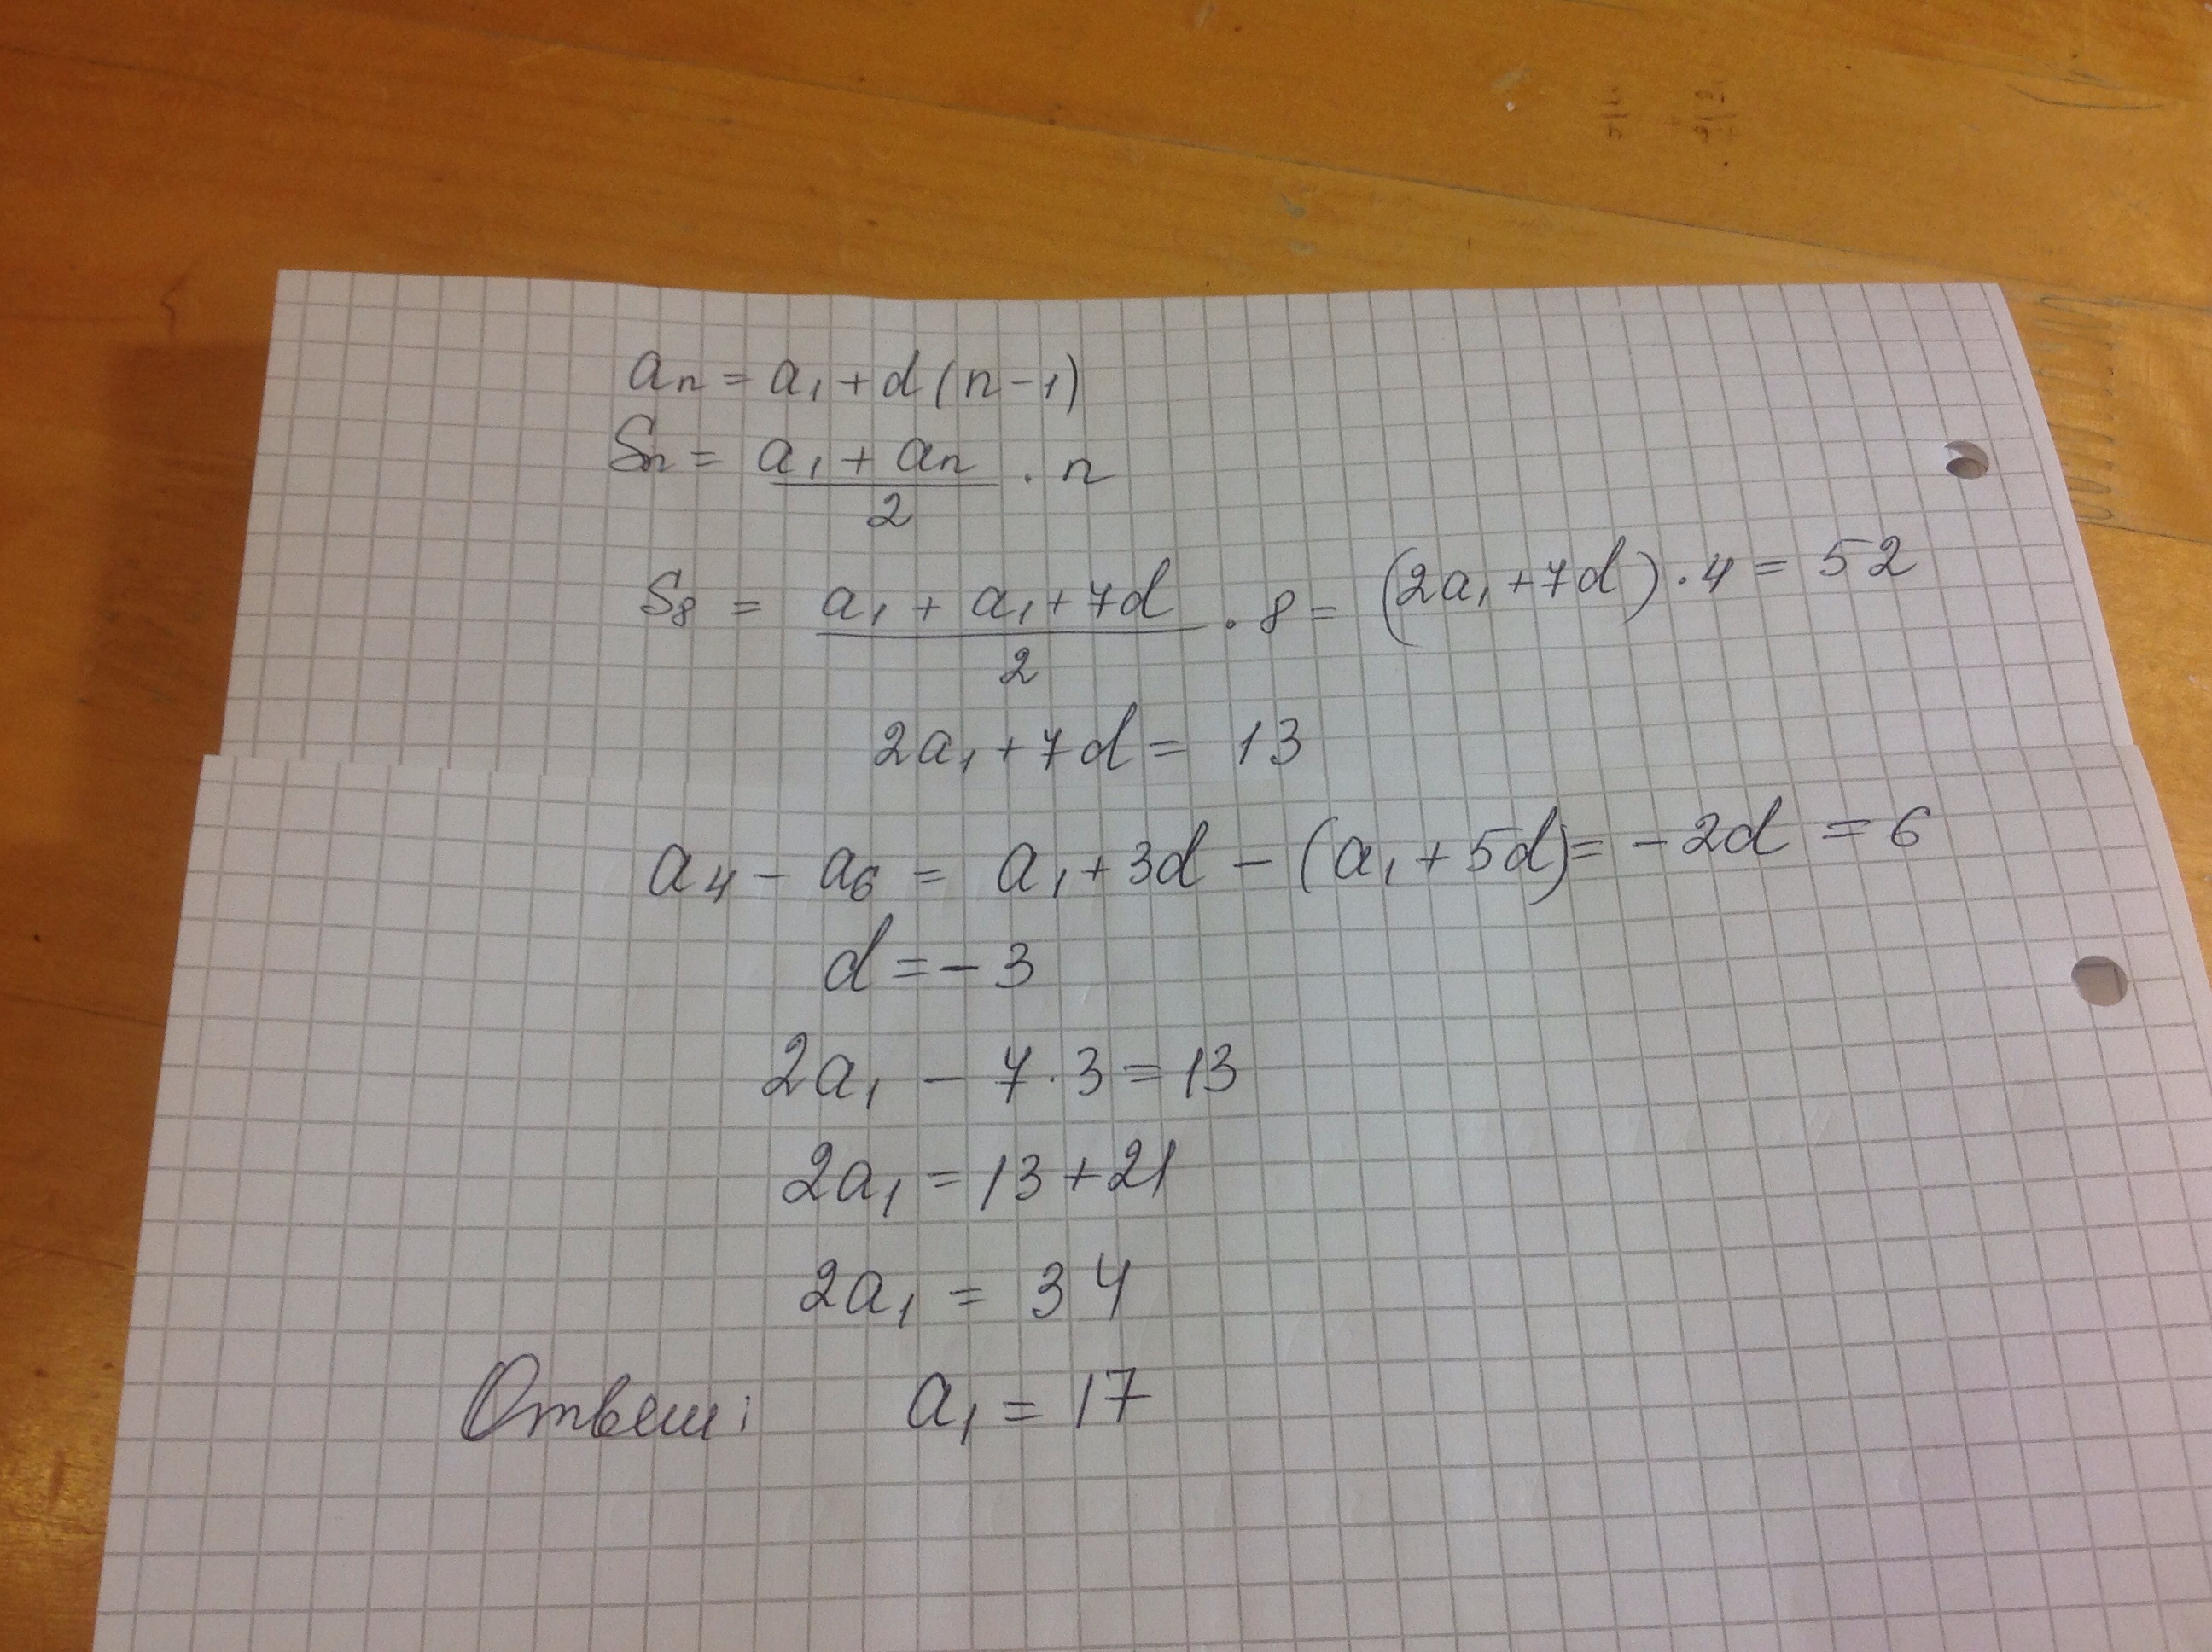 aₙ = a₁ + d(n-1)
Sₙ = (a₁ + aₙ)/2 · n
S₈ = (a₁ + a₁ + 7d)/2 · 8 = (2a₁ + 7d) · 4 = 52
2a₁ + 7d = 13
a₄ - a₆ = a₁ + 3d - (a₁ + 5d) = -2d = 6
d = -3
2a₁ - 7·3 = 13
2a₁ = 13 + 21
2a₁ = 34
Ответ: a₁ = 17